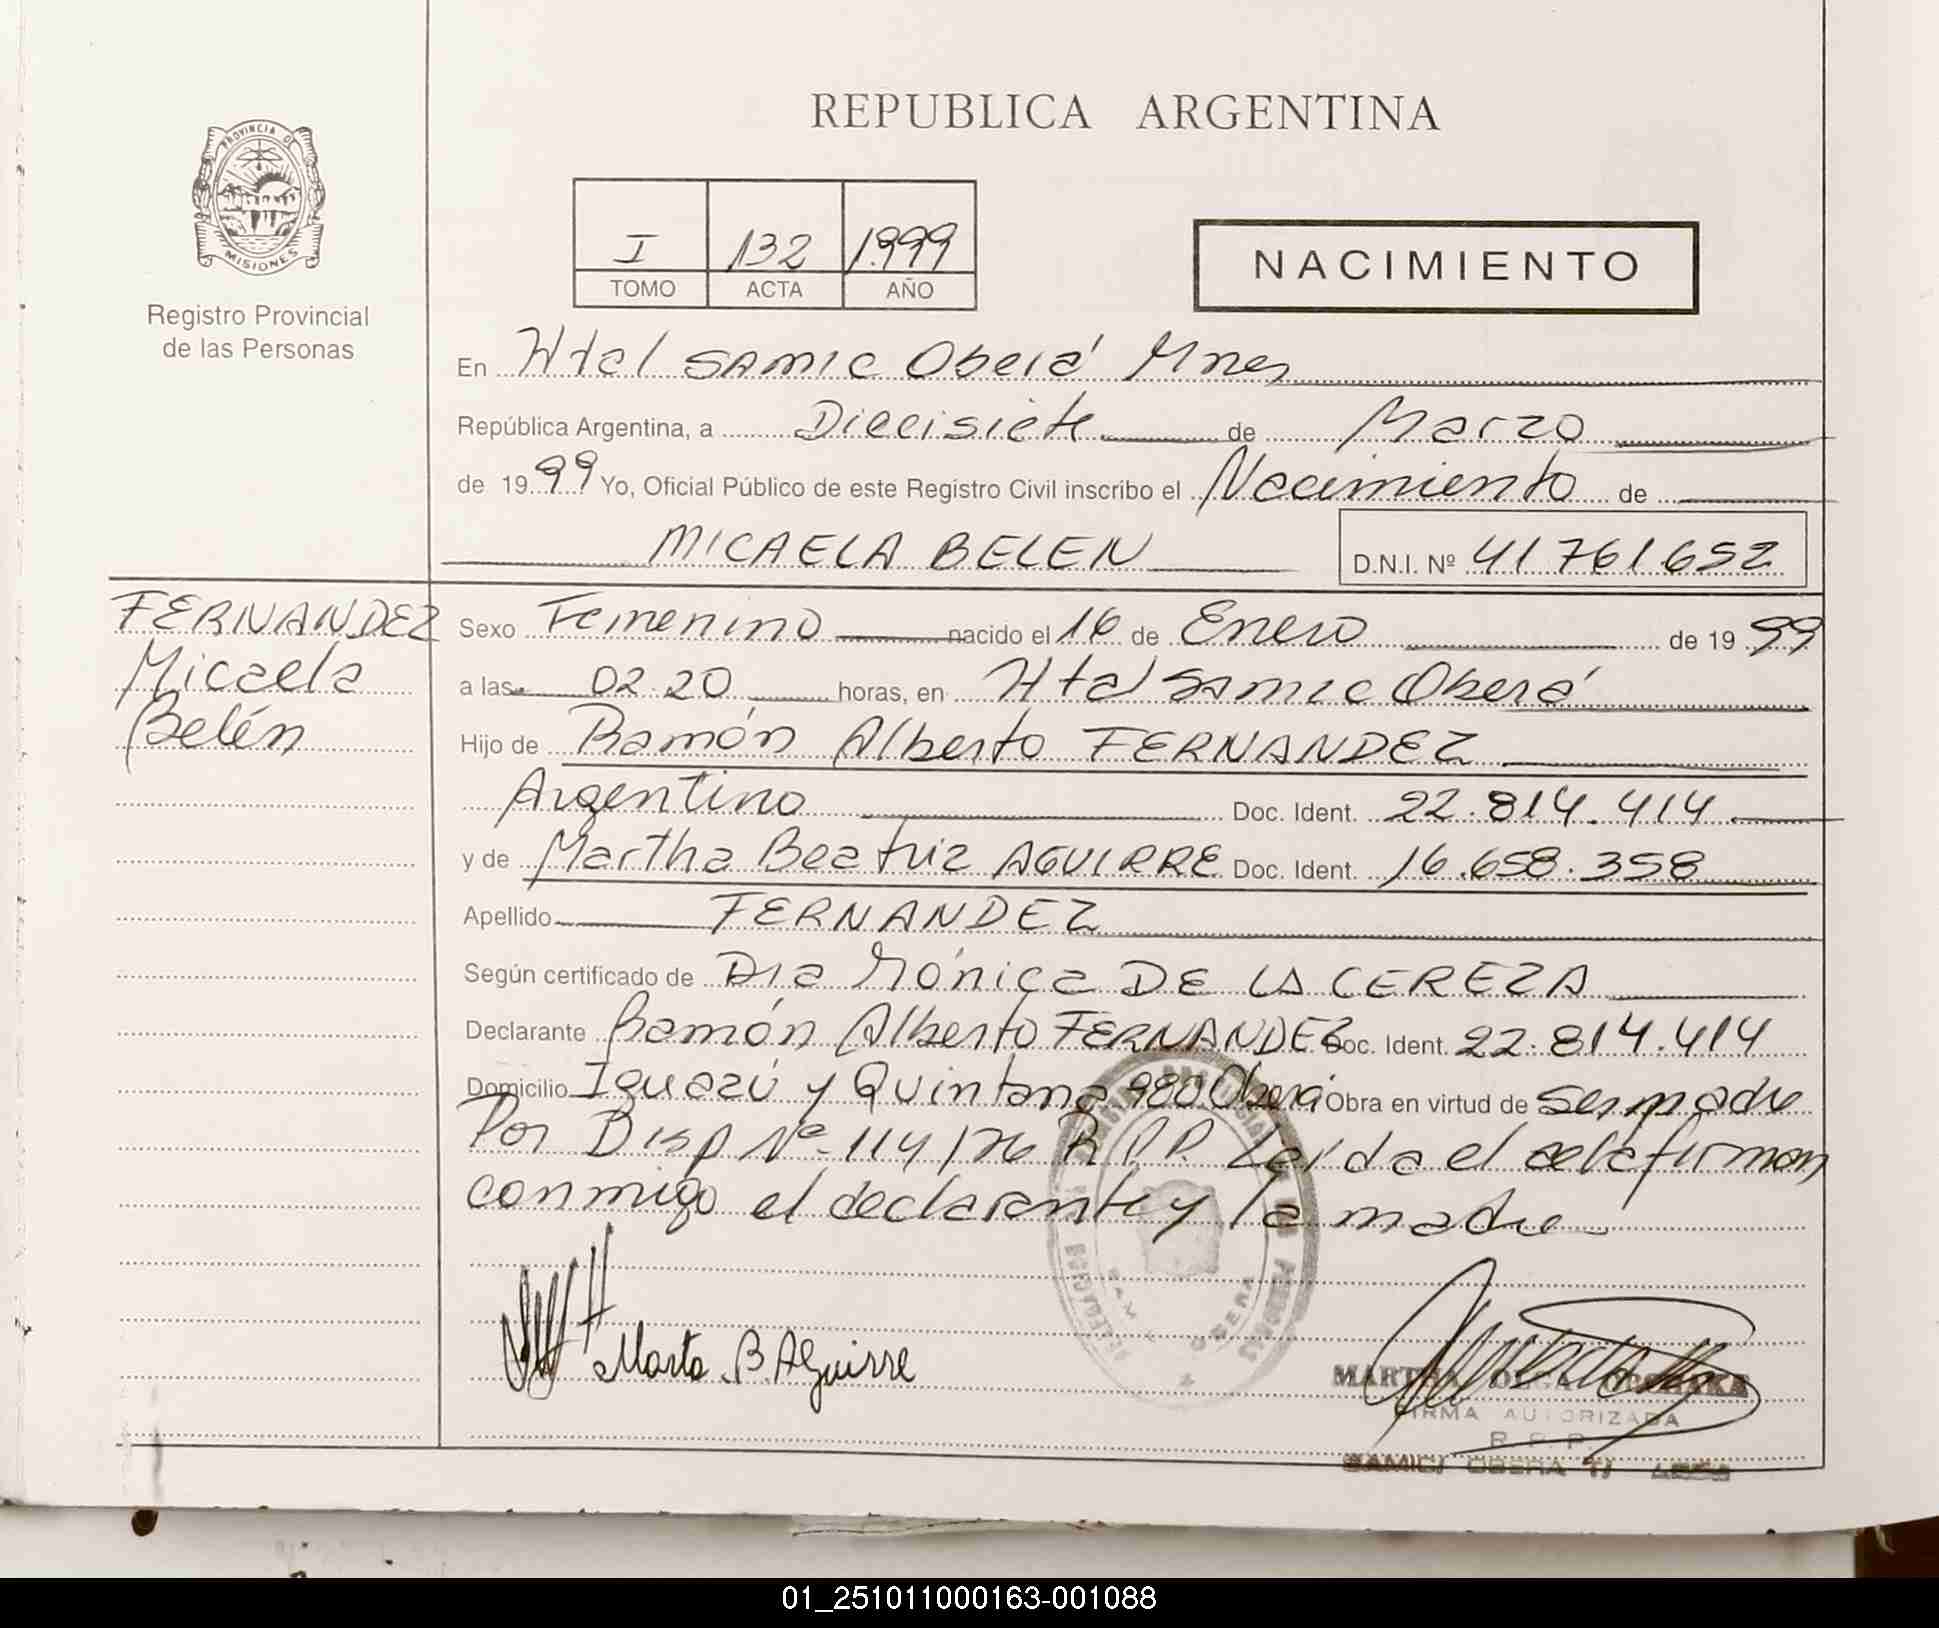 REPUBLICA ARGENTINA
PROVINCIA DE
MISIONES
Registro Provincial
de las Personas
I 132 1.999
TOMO ACTA AÑO
NACIMIENTO
En Htal SAMIC Oberá Mnes
República Argentina, a Diecisiete de Marzo
de 1999 Yo, Oficial Público de este Registro Civil inscribo el Nacimiento de
MICAELA BELEN D.N.I. Nº 41761652
FERNANDEZ
Micaela
Belén
Sexo Femenino nacido el 16 de Enero de 1999
a las 02.20 horas, en Htal SAMIC Oberá
Hijo de Ramón Alberto FERNANDEZ
Argentino Doc. Ident. 22.814.414
y de Martha Beatriz AGUIRRE Doc. Ident. 16.658.358
Apellido FERNANDEZ
Según certificado de Dra Mónica DE LA CEREZA
Declarante Ramón Alberto FERNANDEZ Doc. Ident. 22.814.414
Domicilio Iguazú y Quintana 980 Oberá Obra en virtud de ser padre
Por Disp Nº 114/76 R.P.P. Leída el acta firman
conmigo el declarante y la madre
Marta. B. Aguirre
OBERA
MARTHA OLGA
FIRMA AUTORIZADA
R. P. P.
SAMIC/ OBERA
01_251011000163-001088